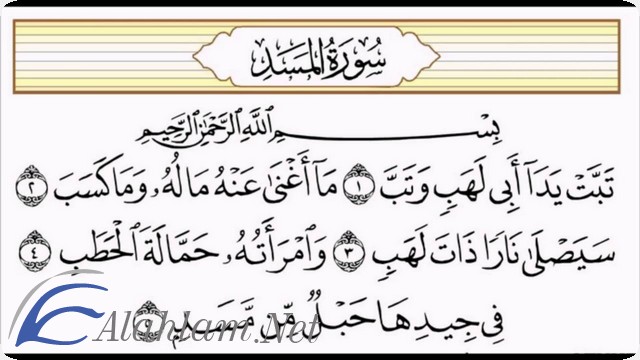 سُورَةُ المَسَدِ
بِسْمِ اللَّهِ الرَّحْمَٰنِ الرَّحِيمِ
تَبَّتْ يَدَآ أَبِى لَهَبٍ وَتَبَّ ١ مَآ أَغْنَىٰ عَنْهُ مَالُهُۥ وَمَا كَسَبَ ٢
سَيَصْلَىٰ نَارًا ذَاتَ لَهَبٍ ٣ وَٱمْرَأَتُهُۥ حَمَّالَةَ ٱلْحَطَبِ ٤
فِى جِيدِهَا حَبْلٌ مِّن مَّسَدٍۭ
Alahlam.Net